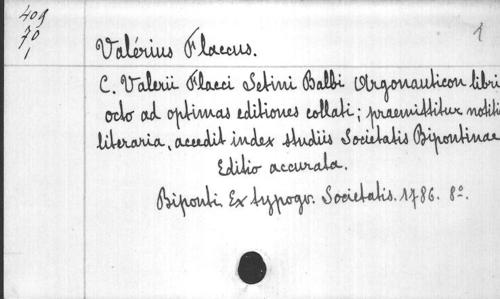 409
70
1
1
Valérius Flaccus.
C. Valerii Flacci Setini Balbi Argonauticon libri
octo ad optimas editiones collati; praemittitur notiti
literaria, accedit index studiis Societatis Bipontinae
Editio accurata.
Biponti. Ex typogr. Societatis. 1786. 8º.